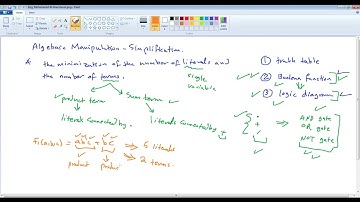 Algebraic Manipulation - Simplification.
* the minimization of the number of literals and
the number of terms.
single
variable
product term
Sum term
literals connected by .
literals connected by +
F(a,b,c) = abc + bc
⇒ 5 literals
⇒ 2 terms.
product
product
① truth table
② Boolean function
③ logic diagram
AND gate
OR gate
NOT gate